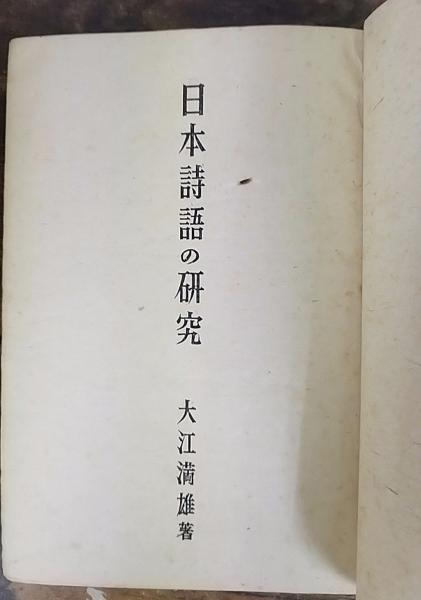 日本詩語の研究
大江満雄著